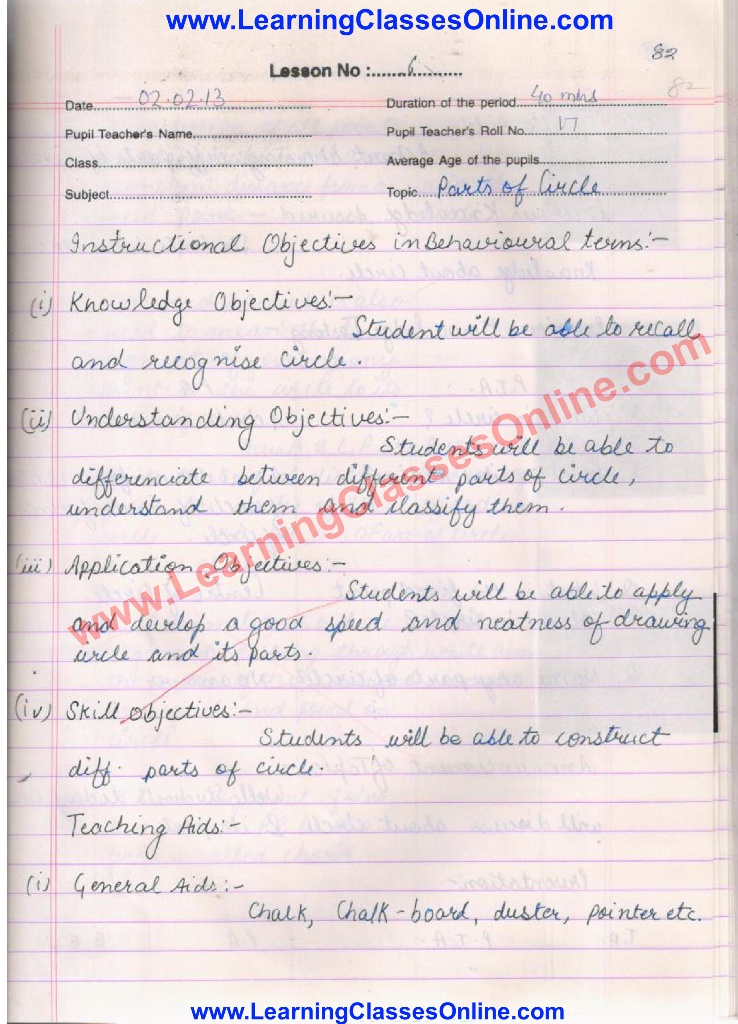 www.LearningClassesOnline.com
82
Lesson No :......6..........
82
Date....02.02.13.... Duration of the period...40 mins
Pupil Teacher's Name.... Pupil Teacher's Roll No....17....
Class.... Average Age of the pupils....
Subject.... Topic...Parts of Circle....
Instructional Objectives in Behavioural terms:-
(i) Knowledge Objectives:-
Student will be able to recall
and recognise circle.
(ii) Understanding Objectives:-
Students will be able to
differenciate between different parts of circle,
understand them and classify them.
(iii) Application Objectives:-
Students will be able to apply
and develop a good speed and neatness of drawing
circle and its parts.
(iv) Skill Objectives:-
Students will be able to construct
diff. parts of circle.
Teaching Aids:-
(i) General Aids:-
Chalk, Chalk-board, duster, pointer etc.
www.LearningClassesOnline.com
www.LearningClassesOnline.com